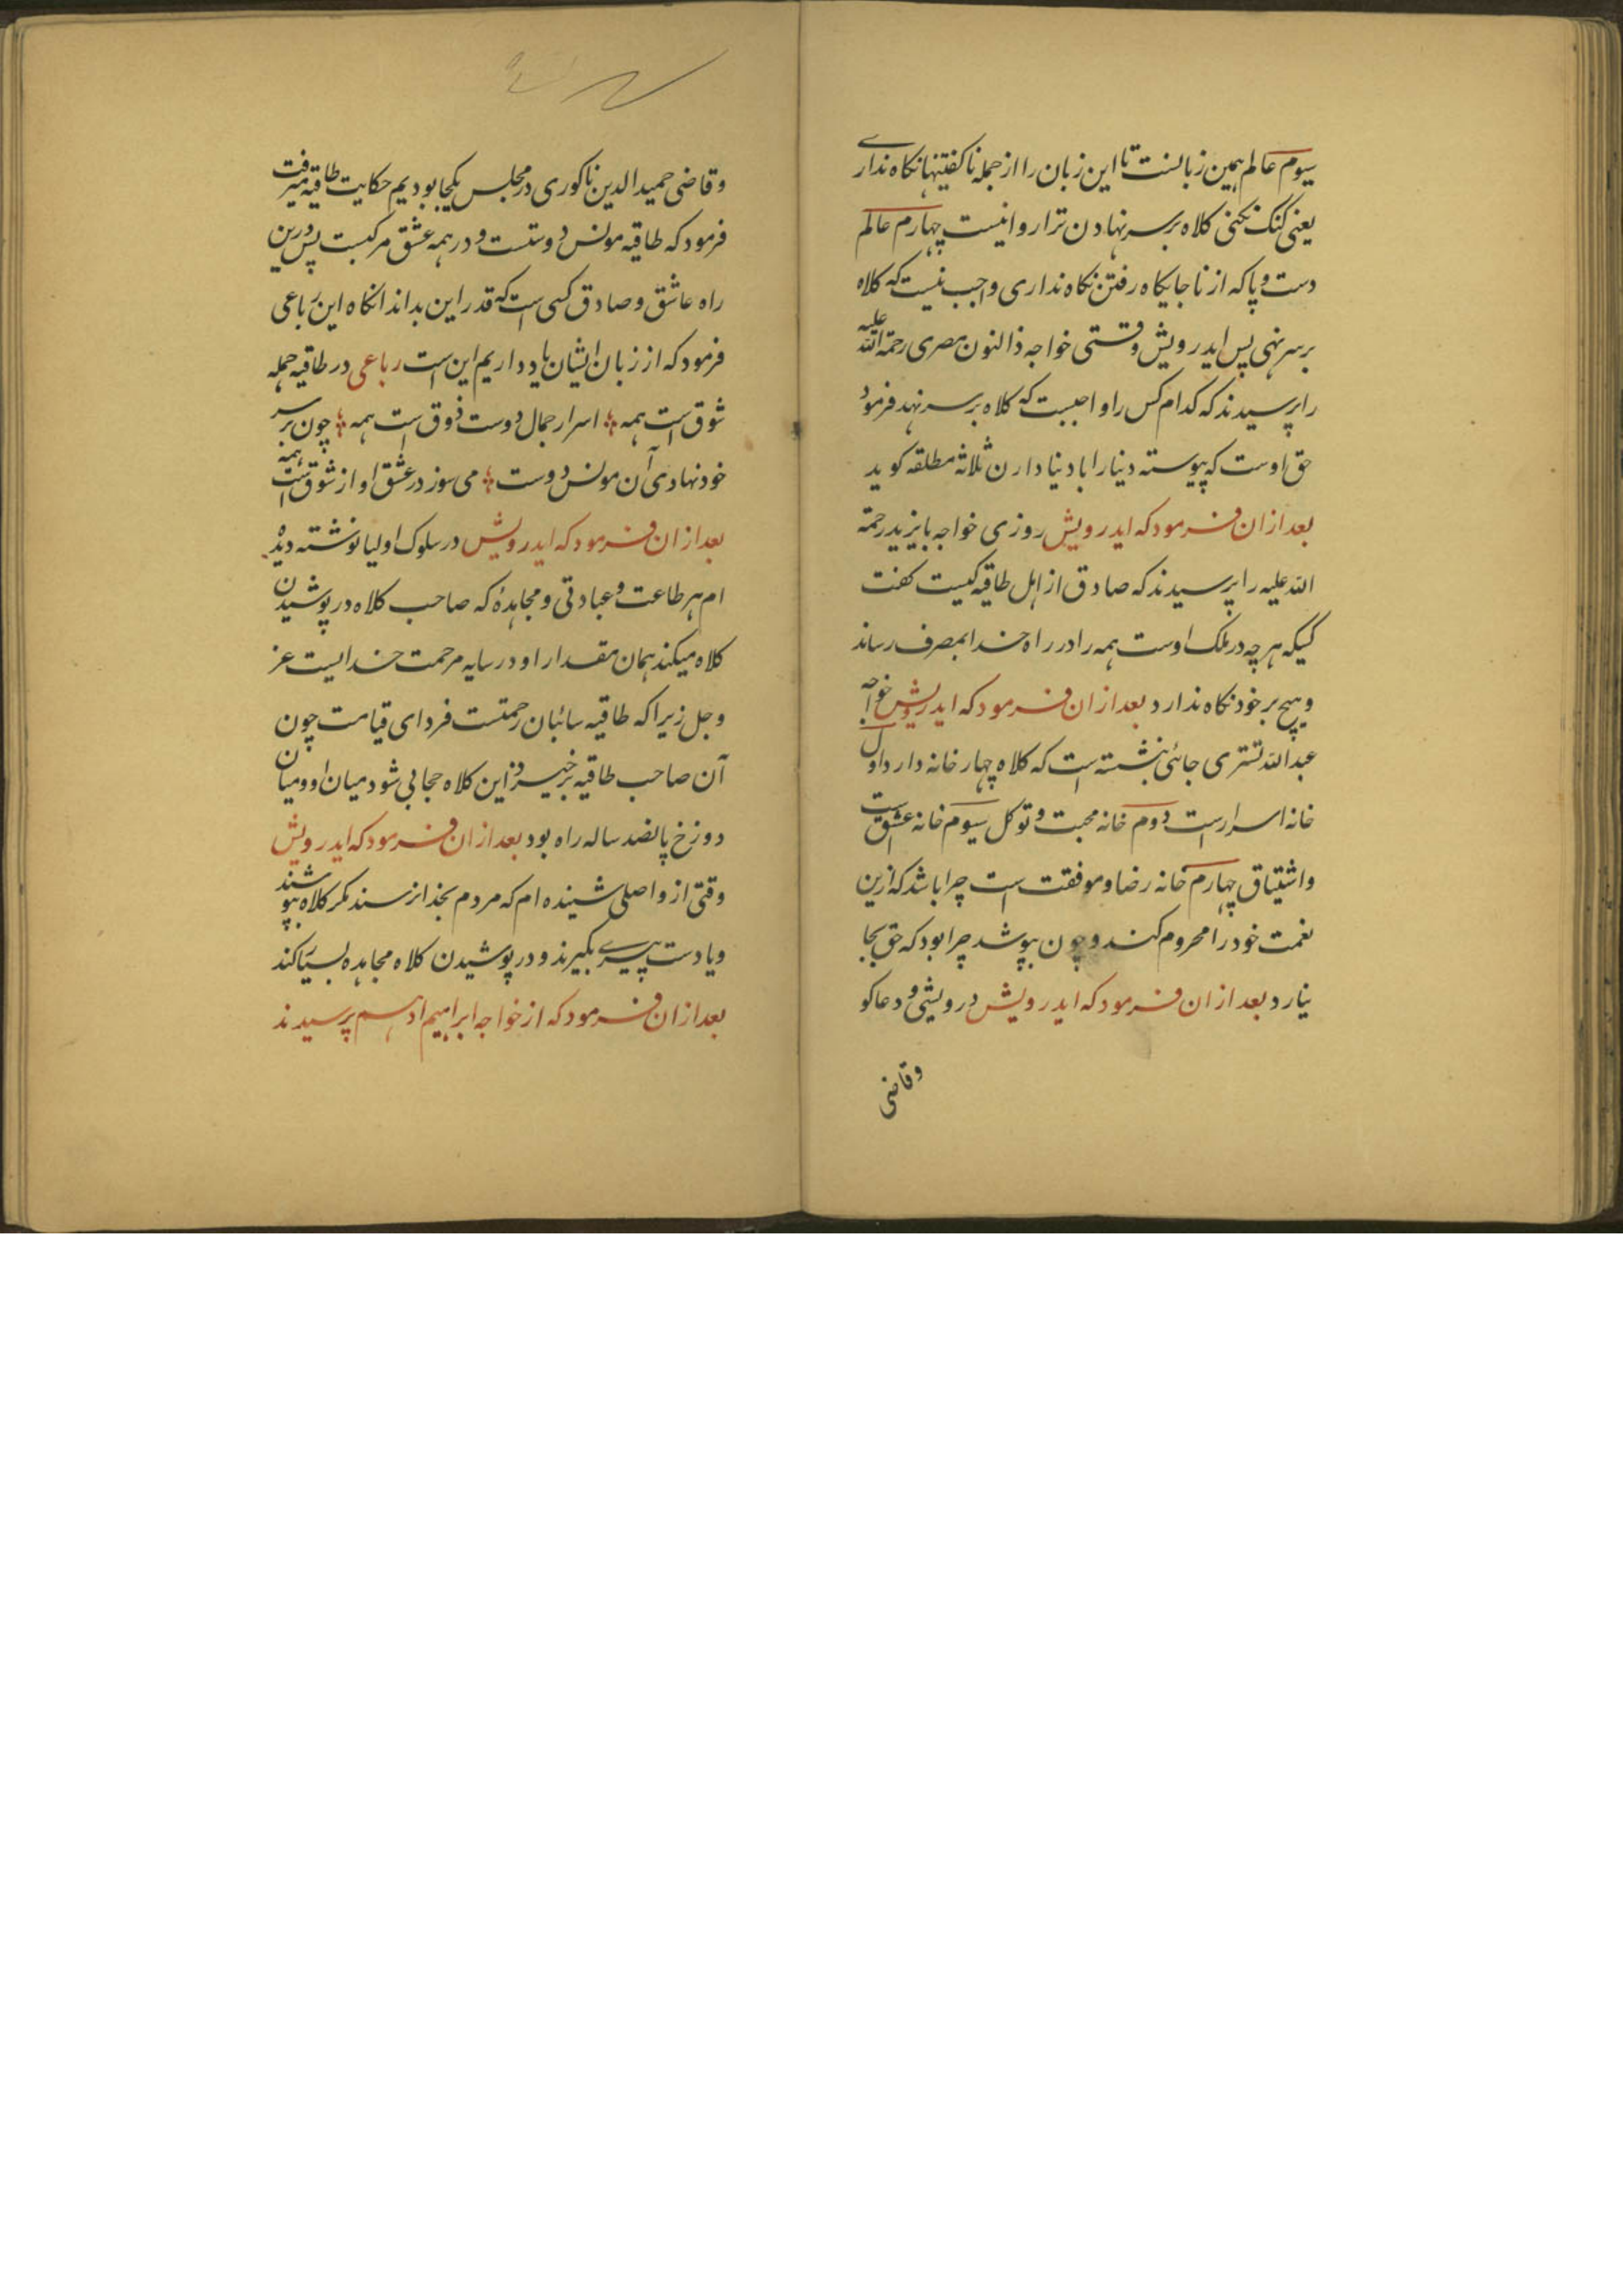 سیوم عالم همین زبانست تا این زبان را از جمله ناکفتیها نکاه نداری
یعنی کنک نکنی کلاه بر سر نهادن ترا روا نیست چهارم عالم
دست و پا که از ناجایکاه رفتن نکاه نداری واجب نیست که کلاه
بر سر نهی پس ایدرویش وقتی خواجه ذالنون مصری رحمة الله علیه
را پرسیدند که کدام کس را واجبست که کلاه بر سر نهد فرمود
حق اوست که پیوسته دنیا را با دنیاداران ثلاثه مطلقه کوید
بعد ازان فرمود که ایدرویش روزی خواجه بایزید رحمة
الله علیه را پرسیدند که صادق از اهل طاقیه کیست کفت
کسیکه هر چه در ملک اوست همه را در راه خدا بمصرف رساند
و هیچ بر خود نکاه ندارد بعد ازان فرمود که ایدرویش خواجه
عبدالله تستری جائی نبشته است که کلاه چهار خانه دارد اول
خانه اسرارست دوم خانه محبت و توکل سیوم خانه عشق است
و اشتیاق چهارم خانه رضا و موفقت است چرا باشد که ازین
نعمت خود را محروم کند و چون بپوشد چرا بود که حق بجا
نیارد بعد ازان فرمود که ایدرویش درویشی و دعاکو
وقاضی
وقاضی حمیدالدین ناکوری در مجلس یکجا بودیم حکایت طاقیه میرفت
فرمود که طاقیه مونس دوستست و در همه عشق مرکبست پس درین
راه عاشق و صادق کسی است که قدر این بداند انکاه این رباعی
فرمود که از زبان ایشان یاد داریم این است رباعی در طاقیه جمله
شوق است همه اسرار جمال دوست ذوق است همه چون بر سر
خود نهادی آن مونس دوست می سوز در عشق او از شوق است همه
بعد ازان فرمود که ایدرویش در سلوک اولیا نوشته دیده
ام هر طاعت و عبادتی و مجاهدهٔ که صاحب کلاه در پوشیدن
کلاه میکند همان مقدار او در سایه مرحمت خدایست عز
و جل زیرا که طاقیه سائبان رحمتست فردای قیامت چون
آن صاحب طاقیه برخیزد این کلاه حجابی شود میان او و میان
دوزخ پانصد ساله راه بود بعد ازان فرمود که ایدرویش
وقتی از واصلی شنیده ام که مردم بخدا نرسند مکر کلاه بپوشند
و یا دست پیری بکیرند و در پوشیدن کلاه مجاهده بسیار کند
بعد ازان فرمود که از خواجه ابراهیم ادهم پرسیدند